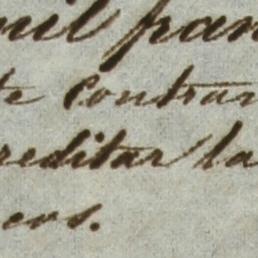 mil fran
te contrar
reditar la
eos.